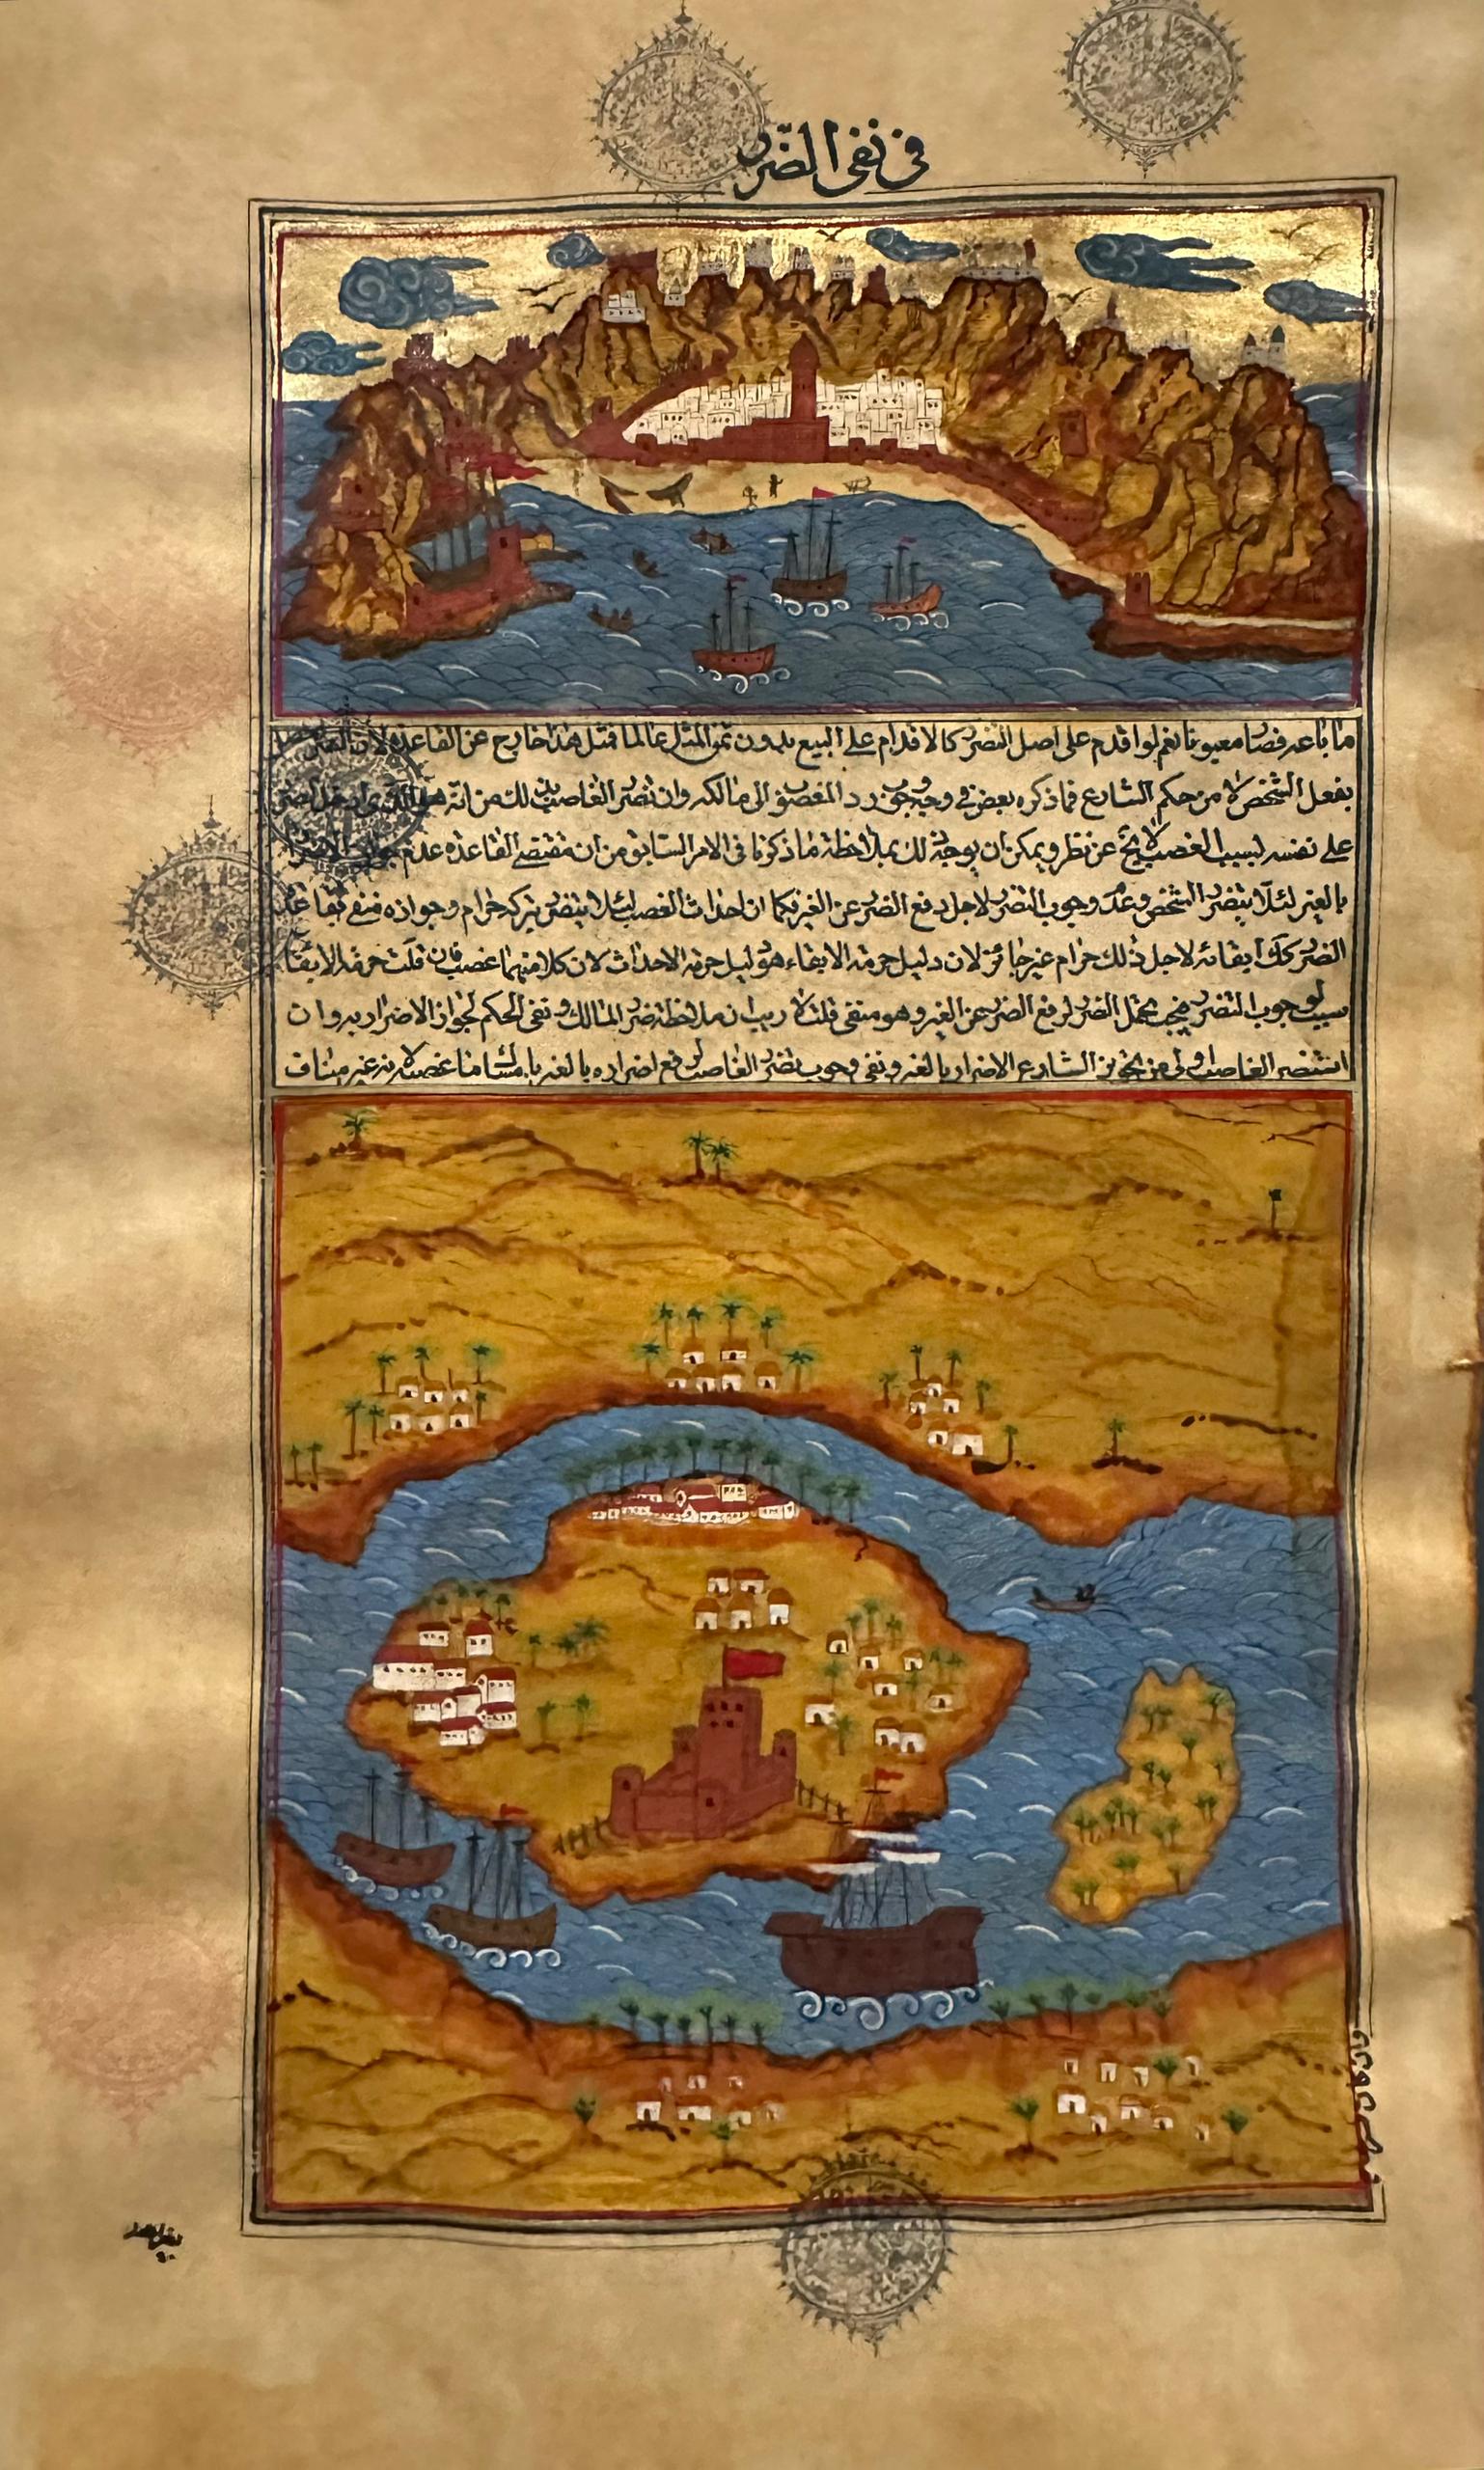 في نفى الضّرر
ما باعه فصار معيوبا نعم لو اقدم على اصل الضرر كالاقدام على البيع بدون ثمن المثل عالما فمثل هذا خارج عن القاعدة لان الضرر
بفعل الشخص لا من حكم الشارع فما ذكره بعض في وجه وجوب رد المغصوب الى مالكه وان تضرر الغاصب بذلك من انه هو الذى ادخل الضرر
على نفسه لسبب الغصب لا يخ عن نظر ويمكن ان يوجه ذلك بملاحظة ما ذكرنا فى الامر السابق من ان مقتضى القاعدة عدم جواز الاضرار
بالغير لئلا يتضرر الشخص وعدم وجوب التضرر لاجل دفع الضرر عن الغير فكما ان احداث الغصب لئلا يتضرر بتركه حرام وجوازه منفى بقاعدة
الضرر كك ابقائه لاجل ذلك حرام غير جائز لان دليل حرمة الابقاء هو دليل حرمة الاحداث لان كلا منهما غصب فان قلت حرمة الابقاء
سبب لوجوب التضرر فيجب تحمل الضرر لرفع الضرر عن الغير وهو منفى قلت لا ريب ان ملاحظة ضرر المالك ونفى الحكم لجواز الاضرار به وان
تضرر الغاصب اولى من تجويز الشارع الاضرار بالغير ونفى وجوب تضرر الغاصب لرفع اضراره بالغير بامساك ما غصبه لانه غير مناف